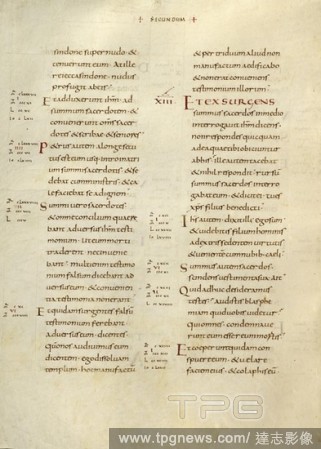 SECUNDUM
sindone super nudo &
conuenerunt eum At ille
reiecta sindone nudus
profugit ab eis
Et adduxerunt ihm ad
summum sacerdotem &
conuenerunt omnes sacer
dotes & scribae & seniores
Petrus autem a longe secu
tus est eum usq; intro in atri
um summi sacerdotis & se
debat cum ministris & ca
lefaciebat se ad ignem
Summi uero sacerdotes
& omne concilium quaere
bant aduersus ihm testi
monium ut eum morti
traderent nec inuenie
bant multi enim testimo
nium falsum dicebant ad
uersus eum & conuenien
tia testimonia non erant
Et quidam surgentes falsum
testimonium ferebant
aduersus eum dicentes
quoniam nos audiuimus eum
dicentem ego dissoluam
templum hoc manufactū
& per triduum aliud non
manufactum aedificabo
& non erat conueniens
testimonium illorum
XIII. ET EXSURGENS
summus sacerdos in medio
interrogauit ihm dicens
non respondes quicquam
ad ea quae tibi obiciuntur
ab his ille autem tacebat
& nihil respondit rursum
summus sacerdos interro
gabat eum & dicit ei tu es
xps filius benedicti
Ihs autem dixit illi ego sum
& uidebitis filium hominis
a dextris sedentem uirtutis
& uenientem cum nubib; caeli
Summus autem sacerdos
scindens uestimenta sua ait
Quid adhuc desideramus
testes audistis blasphe
miam quid uobis uidetur
qui omnes condemnaue
runt eum esse reum mortis
Et coeperunt quidam con
spuere eum & uelare
faciem eius & colaphis eū
TPG
www.tpgnews.com / 達志影像